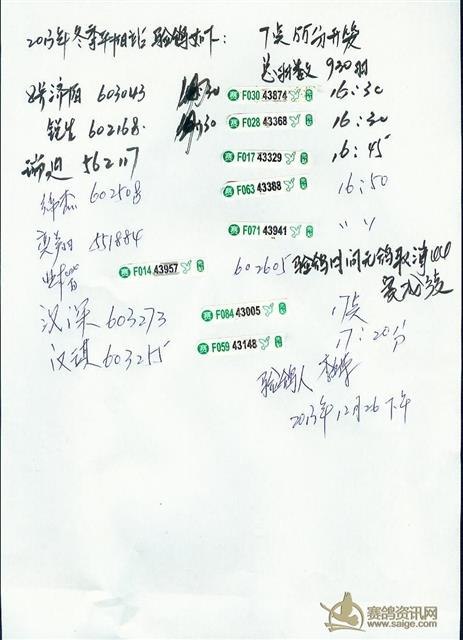 2013年冬季 验鸽如下: 7点55分开笼
总羽数 920羽
济阳 603043 赛 F030 43874 鸽 16:30
锐生 602168 赛 F028 43368 鸽 16:30
562117 赛 F017 43329 鸽 16:45
602508 赛 F063 43388 鸽 16:50
551884 赛 F071 43941 鸽 〃 〃
赛 F014 43957 鸽 602605 验鸽时间无鸽取消
汉深 603273 赛 F084 43005 鸽 17点
汉祺 603215 赛 F059 43148 鸽 17:20分
验鸽人
2013年12月26下午
赛鸽资讯网
www.saige.com